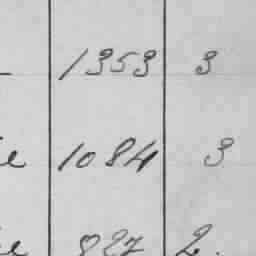 1353 3
1084 3
827 2.